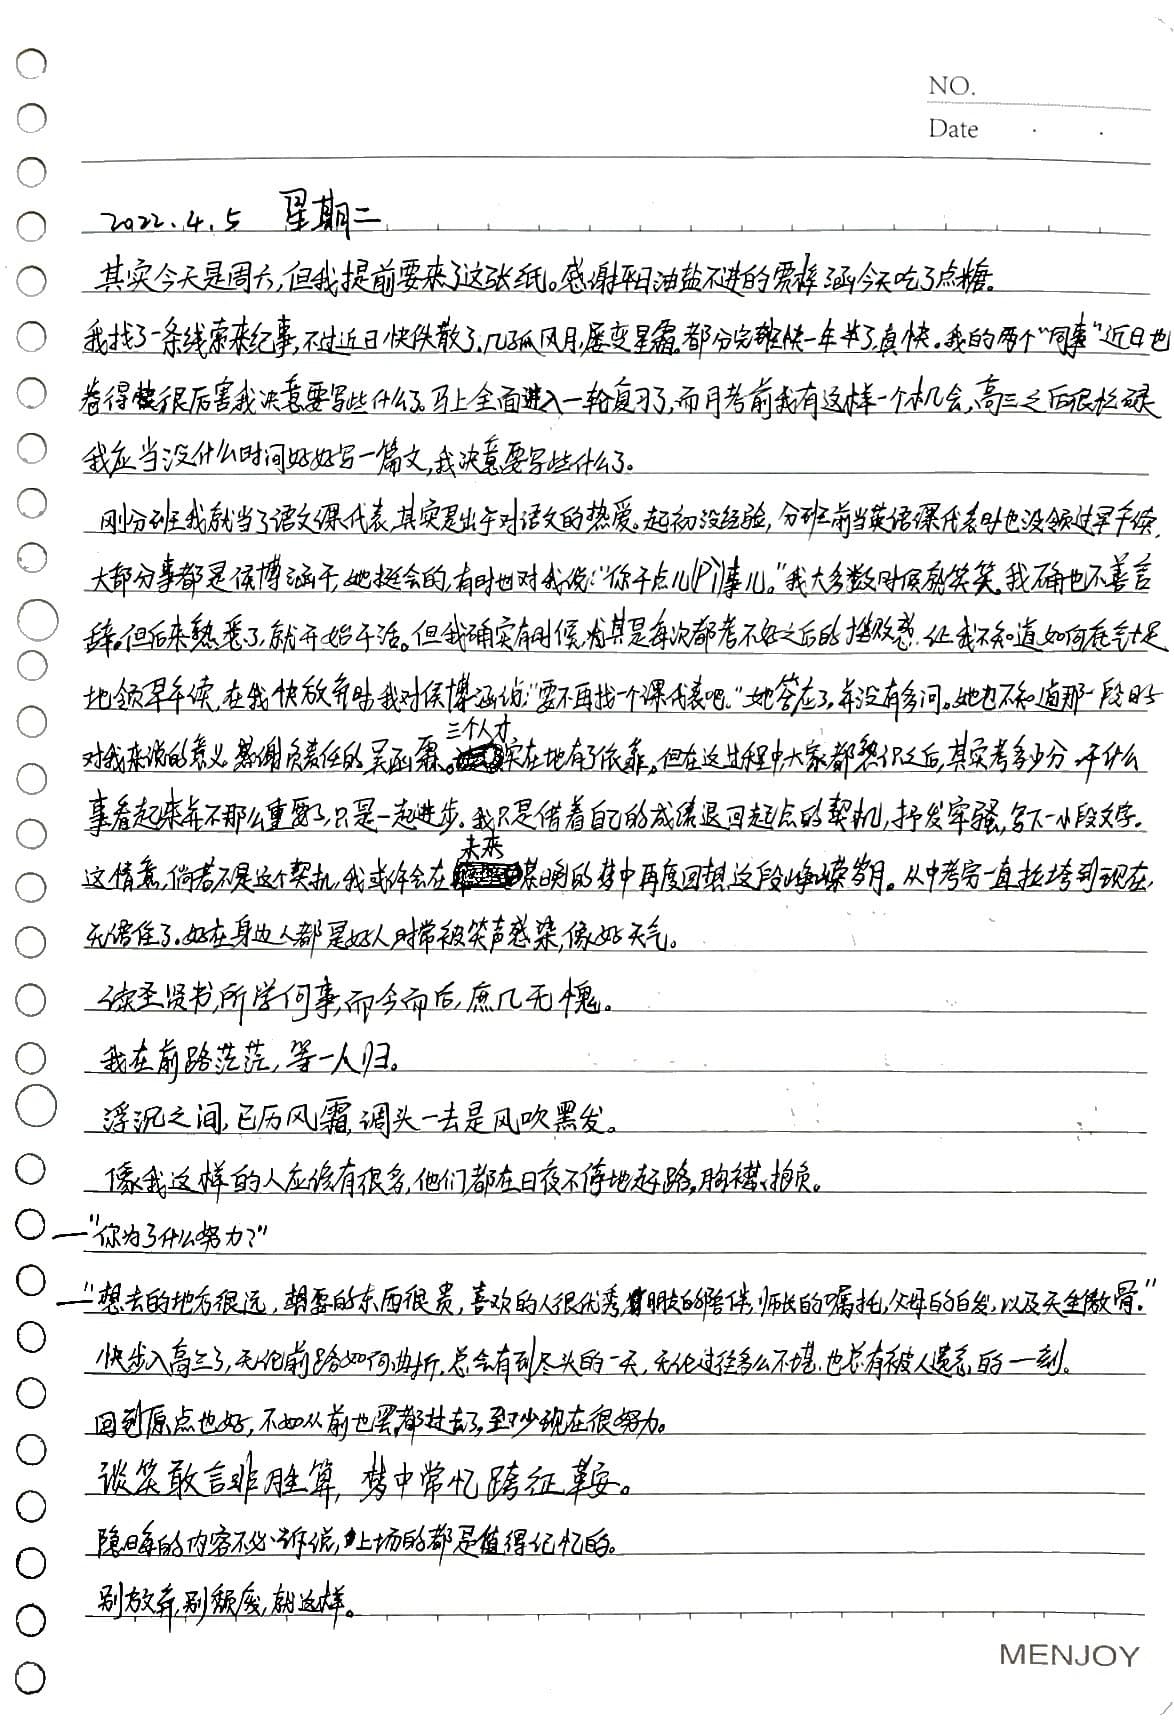 NO.
Date
2022.4.5 星期二
其实今天是周六,但我提前要来了这张纸。感谢平日油盐不进的贾梓涵今天吃了点糖。
我找了一条线索来纪事,不过近日快佚散了,几孤风月,屡变星霜。都分完班快一年半了,真快。我的两个“同事”近日也
卷得很厉害我决意要写些什么了。马上全面进入一轮复习了,而月考前我有这样一个机会,高三之后很忙碌
我应当没什么时间好好写一篇文,我决意要写些什么了。
刚分班我就当了语文课代表,其实是出于对语文的热爱。起初没经验,分班前当英语课代表时也没领过早读,
大部分事都是侯博涵干,她挺会的,有时也对我说:“你干点儿(Pì)事儿。”我大多数时候就笑笑。我确也不善言
辞。但后来熟悉了,就开始干活。但我确实有时候,尤其是每次都考不好之后的挫败感,让我不知道如何底气十足
地领早读,在我快放弃时,我对侯博涵说:“要不再找一个课代表吧。”她答应了,并没有多问。她也不知道那一段日子
对我来说的意义。感谢负责任的吴函霖。三个人才实在地有了依靠。但在这过程中大家都熟识之后,其实考多少分,干什么
事看起来并不那么重要了,只是一起进步。我只是借着自己的成绩退回起点的契机,抒发牢骚,写下一小段文字。
这情意,倘若不是这个契机,我或许会在未来某晚的梦中再度回想这段峥嵘岁月。从中考完一直拉垮到现在,
无语住了。好在身边人都是好人,时常被笑声感染,像好天气。
读圣贤书,所学何事,而今而后,庶几无愧。
我在前路茫茫,等一人归。
浮沉之间,已历风霜,调头一去是风吹黑发。
像我这样的人应该有很多,他们都在日夜不停地赶路,胸襟、抱负。
—“你为了什么努力?”
—“想去的地方很远,想要的东西很贵,喜欢的人很优秀,朋友的陪伴,师长的嘱托,父母的白发,以及天生傲骨。”
快步入高三了,无论前路如何曲折,总会有到尽头的一天,无论过往多么不堪,也总有被人遗忘的一刻。
回到原点也好,不如从前也罢,都过去了,至少现在很努力。
谈笑敢言非胜算,梦中常忆跨征鞍。
隐晦的内容不必诉说,上场的都是值得记忆的。
别放弃,别颓废,就这样。
MENJOY